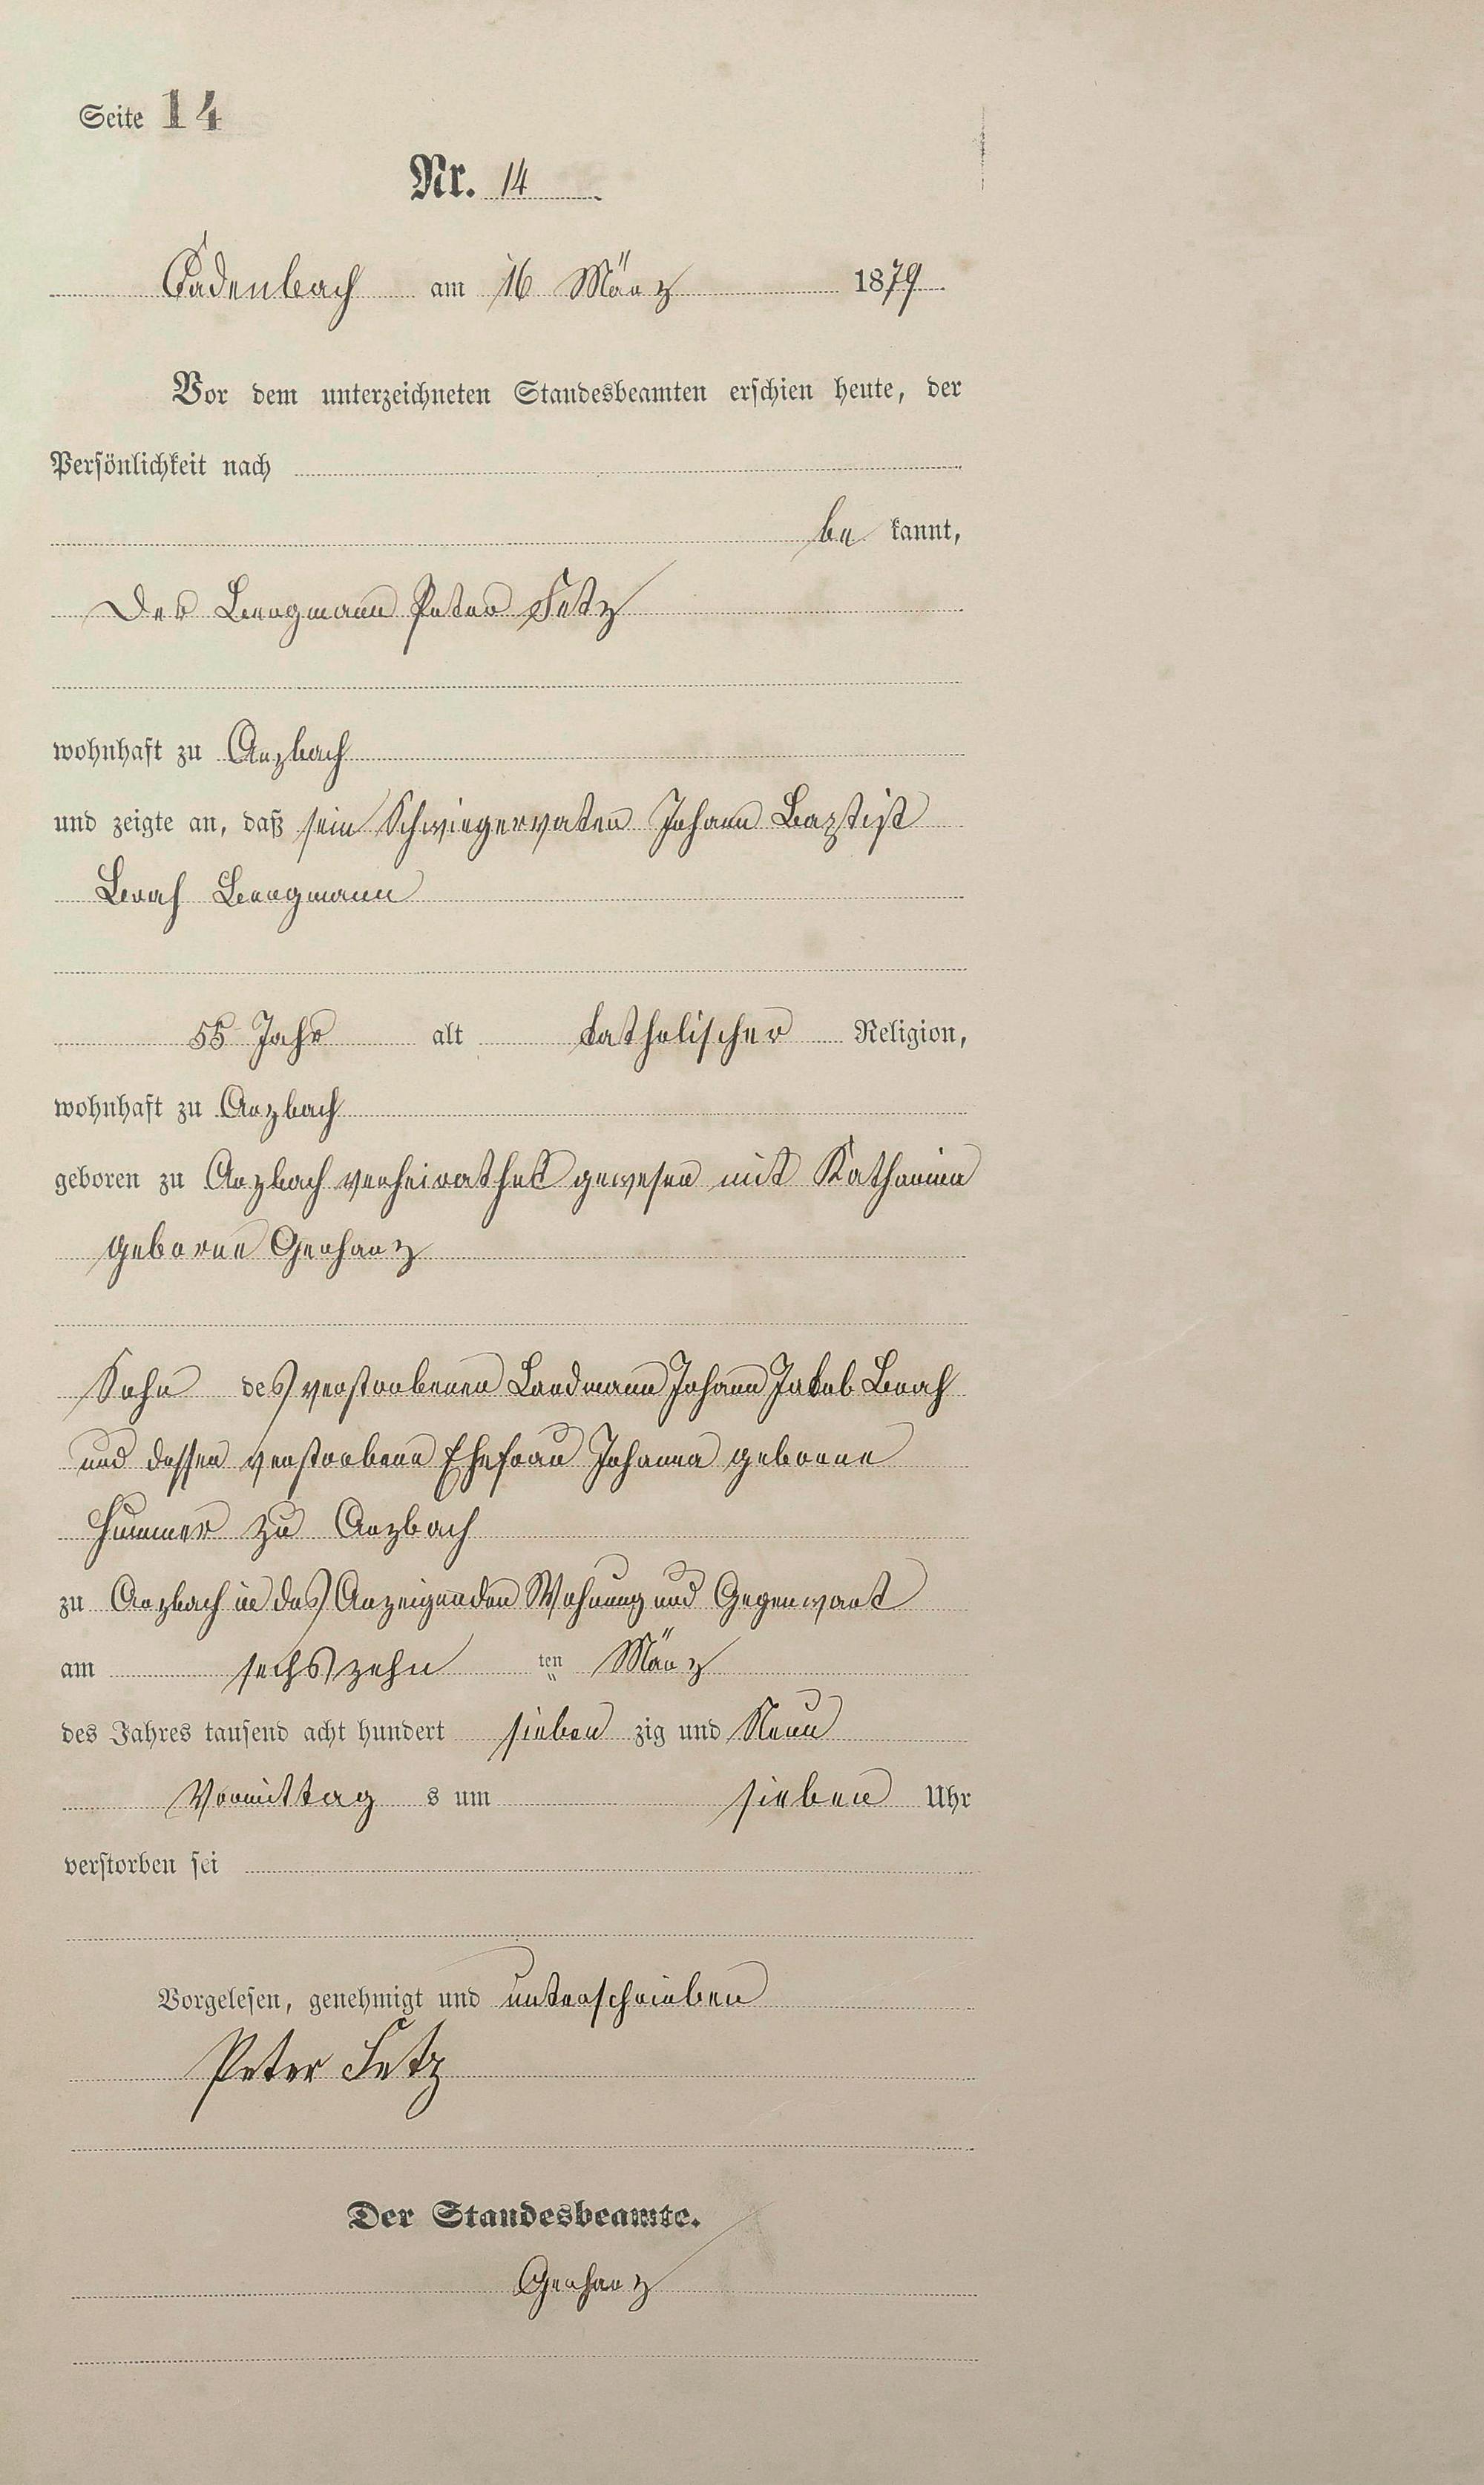 Seite 14
Nr. 14
Cadenbach am 16 März 1879
Vor dem unterzeichneten Standesbeamten erschien heute, der
Persönlichkeit nach
be kannt,
Der Bergmann Peter Fetz
wohnhaft zu Arzbach
und zeigte an, daß sein Schwiegervater Johann Baptist
Bergmann
55 Jahr alt katholischer Religion,
wohnhaft zu Arzbach
geboren zu Arzbach verheirathet gewesen mit Katharina
geborne Gerharz
Sohn des verstorbenen Landmann Johann Jakob
und dessen verstorbene Ehefrau Johanna geborne
Hummer zu Arzbach
zu Arzbach in des Anzeigenden Wohnung und Gegenwart
am sechszehn ten März
des Jahres tausend acht hundert sieben zig und Neun
Vormittag s um sieben Uhr
verstorben sei
Vorgelesen, genehmigt und unterschrieben
Peter Fetz
Der Standesbeamte.
Gerharz